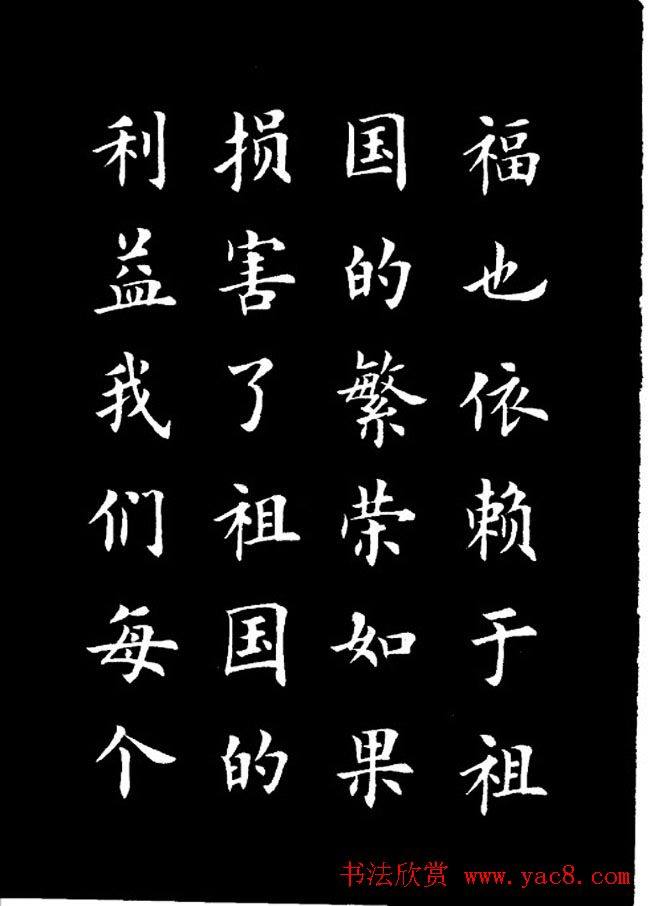 福也依赖于祖
国的繁荣如果
损害了祖国的
利益我们每个
书法欣赏 www.yac8.com